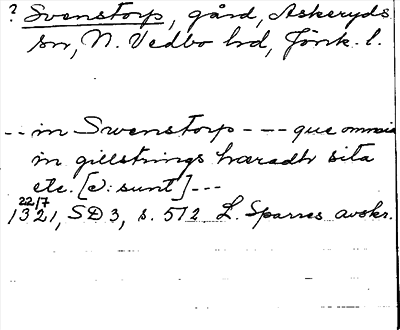 ? Svenstorp, gård, Askeryds
sn, N. Vedbo hd, Jönk. l.
-- in Swenstorp --- que omnia
in gillstrings hæradh sita
etc. [ɔ: sunt] ---
22/7
1321, SD 3, s. 512 L. Sparres avskr.